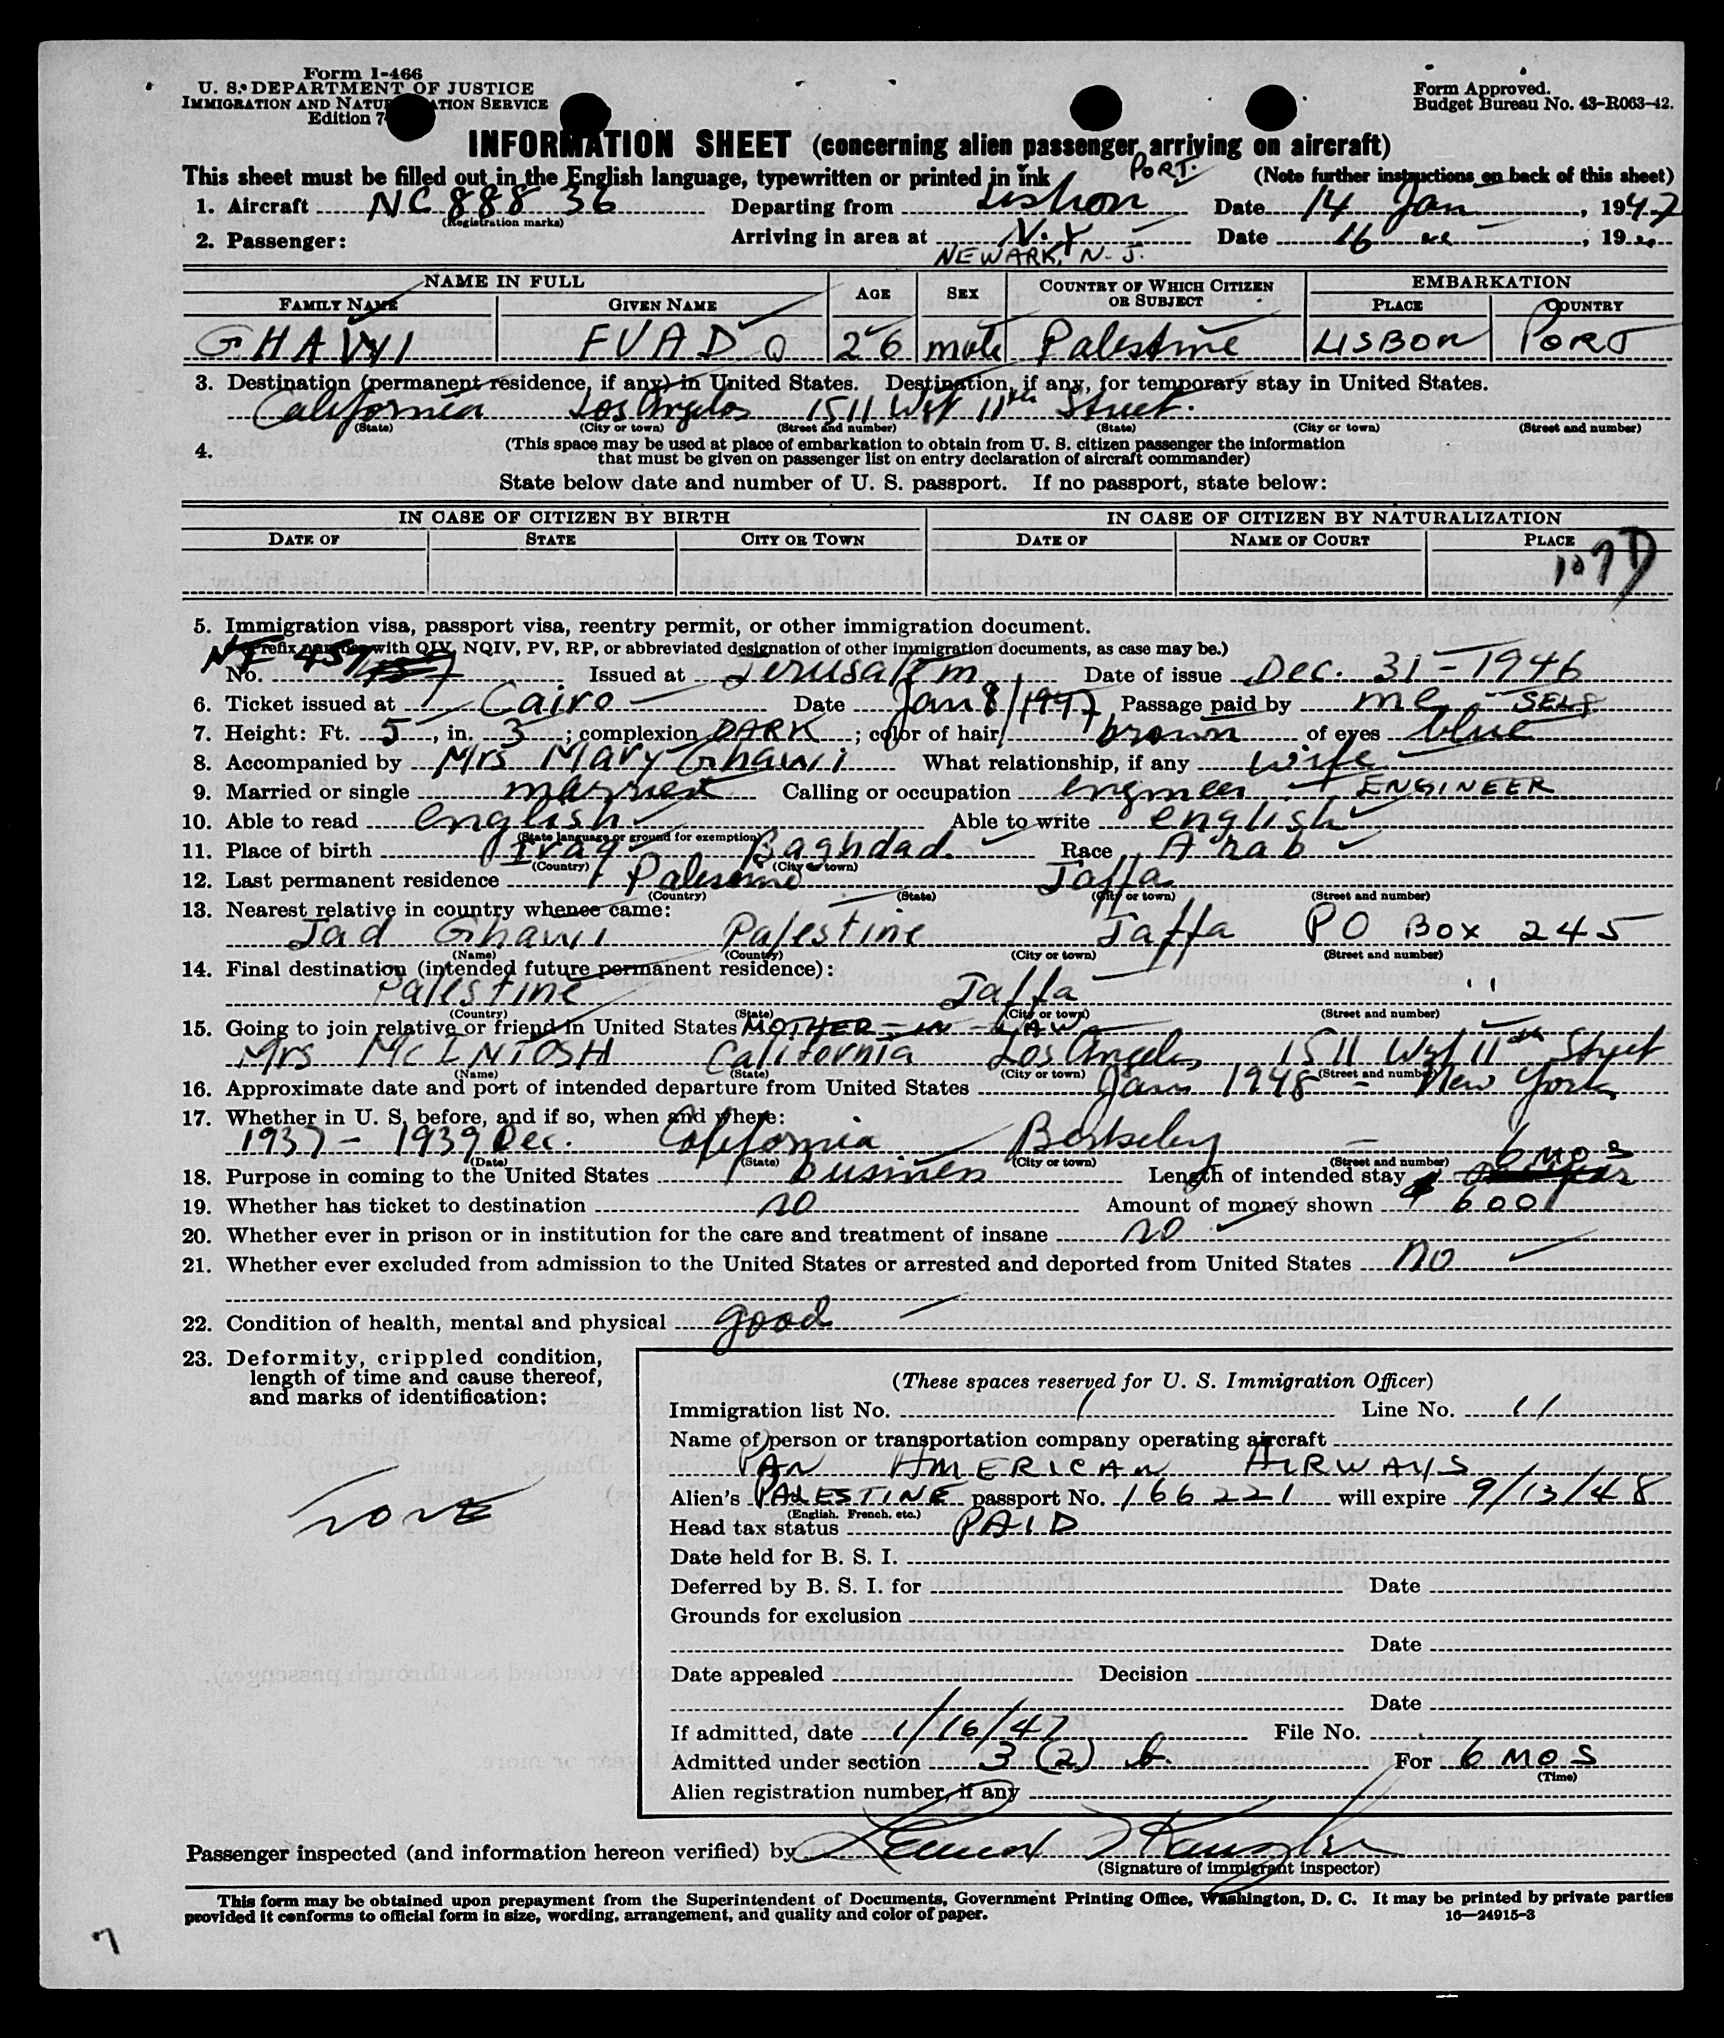 Form I-466
U. S. DEPARTMENT OF JUSTICE
IMMIGRATION AND NATURALIZATION SERVICE
Edition 7-
Form Approved.
Budget Bureau No. 43-R063-42.
INFORMATION SHEET (concerning alien passenger arriving on aircraft)
This sheet must be filled out in the English language, typewritten or printed in ink PORT. (Note further instructions on back of this sheet)
1. Aircraft NC 888 36 Departing from Lisbon Date 14 Jan, 1947
(Registration marks)
2. Passenger: Arriving in area at N.Y Date 16, 19
NEWARK, N. J.
NAME IN FULL AGE SEX COUNTRY OF WHICH CITIZEN OR SUBJECT EMBARKATION
FAMILY NAME GIVEN NAME PLACE COUNTRY
GHAWI FUAD Q 26 male Palestine LISBON PORT
3. Destination (permanent residence, if any) in United States. Destination, if any, for temporary stay in United States.
California Los Angelos 1511 West 11th Street.
(State) (City or town) (Street and number) (State) (City or town) (Street and number)
4. (This space may be used at place of embarkation to obtain from U. S. citizen passenger the information
that must be given on passenger list on entry declaration of aircraft commander)
State below date and number of U. S. passport. If no passport, state below:
IN CASE OF CITIZEN BY BIRTH IN CASE OF CITIZEN BY NATURALIZATION
DATE OF STATE CITY OR TOWN DATE OF NAME OF COURT PLACE
5. Immigration visa, passport visa, reentry permit, or other immigration document.
(Prefix number with QIV, NQIV, PV, RP, or abbreviated designation of other immigration documents, as case may be.)
No. 457 Issued at Jerusalem Date of issue Dec. 31 - 1946
6. Ticket issued at Cairo Date Jan 8/1947 Passage paid by me - SELF
7. Height: Ft. 5, in. 3; complexion DARK; color of hair brown of eyes blue
8. Accompanied by Mrs Mary Ghawi What relationship, if any wife
9. Married or single married Calling or occupation engineer ENGINEER
10. Able to read english Able to write english
(State language or ground for exemption)
11. Place of birth Iraq Baghdad. Race Arab
(Country) (City or town)
12. Last permanent residence Palestine Jaffa
(Country) (State) (City or town) (Street and number)
13. Nearest relative in country whence came:
Jad Ghawi Palestine Jaffa PO Box 245
(Name) (Country) (City or town) (Street and number)
14. Final destination (intended future permanent residence):
Palestine Jaffa " "
(Country) (State) (City or town) (Street and number)
15. Going to join relative or friend in United States MOTHER-IN-LAW
Mrs McINTOSH California Los Angeles 1511 West 11th Street
(Name) (State) (City or town) (Street and number)
16. Approximate date and port of intended departure from United States Jan 1948 - New York
17. Whether in U. S. before, and if so, when and where:
1937 - 1939 Dec. California Berkeley
(Date) (State) (City or town) (Street and number)
18. Purpose in coming to the United States business Length of intended stay 6 MOS
19. Whether has ticket to destination no Amount of money shown $ 600
20. Whether ever in prison or in institution for the care and treatment of insane no
21. Whether ever excluded from admission to the United States or arrested and deported from United States no
22. Condition of health, mental and physical good
23. Deformity, crippled condition,
length of time and cause thereof,
and marks of identification:
NONE
(These spaces reserved for U. S. Immigration Officer)
Immigration list No. 1 Line No. 11
Name of person or transportation company operating aircraft
PAN AMERICAN AIRWAYS
Alien's PALESTINE passport No. 166221 will expire 9/13/48
(English, French, etc.)
Head tax status PAID
Date held for B. S. I.
Deferred by B. S. I. for Date
Grounds for exclusion
Date
Date appealed Decision
Date
If admitted, date 1/16/47 File No.
Admitted under section 3 (2) b. For 6 MOS
(Time)
Alien registration number, if any
Passenger inspected (and information hereon verified) by
(Signature of immigrant inspector)
This form may be obtained upon prepayment from the Superintendent of Documents, Government Printing Office, Washington, D. C. It may be printed by private parties
provided it conforms to official form in size, wording, arrangement, and quality and color of paper. 16—24915-3
7